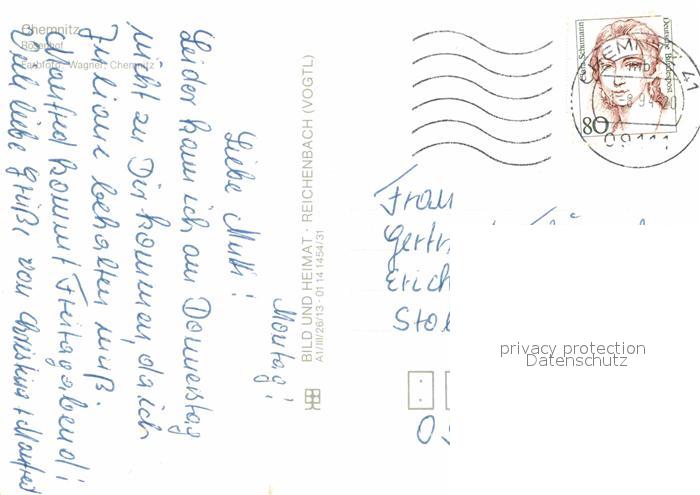 Chemnitz
Rosenhof
Farbfoto: Wagner, Chemnitz
Montag!
Liebe Mutti!
Leider kann ich am Donnerstag
nicht zu Dir kommen, da ich
Juliane behalten muß.
Manfred kommt Freitagabend!
Viele liebe Grüße von Christina + Manfred
BILD UND HEIMAT · REICHENBACH (VOGTL)
A1/III/26/13 · 01 14 1454/31
Clara Schumann
Deutsche Bundespost
80
CHEMNITZ 41
mb
09111
Frau
Gertr
Erich
Stol
0
privacy protection
Datenschutz